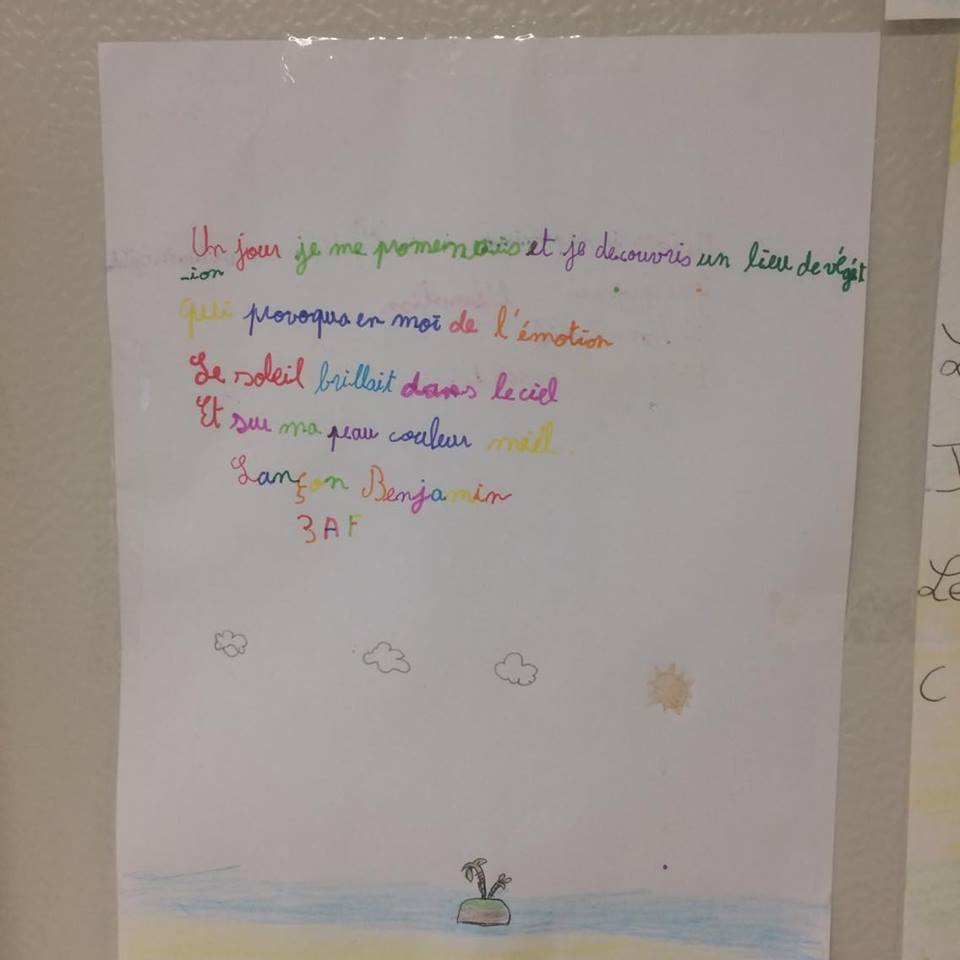 Un jour je me promeinais et je decouvris un lieu de végét
-ion
qui provoqua en moi de l'émotion
Le soleil brillait dans le ciel
Et sur ma peau couleur miel.
Lançon Benjamin
3AF
Le
C